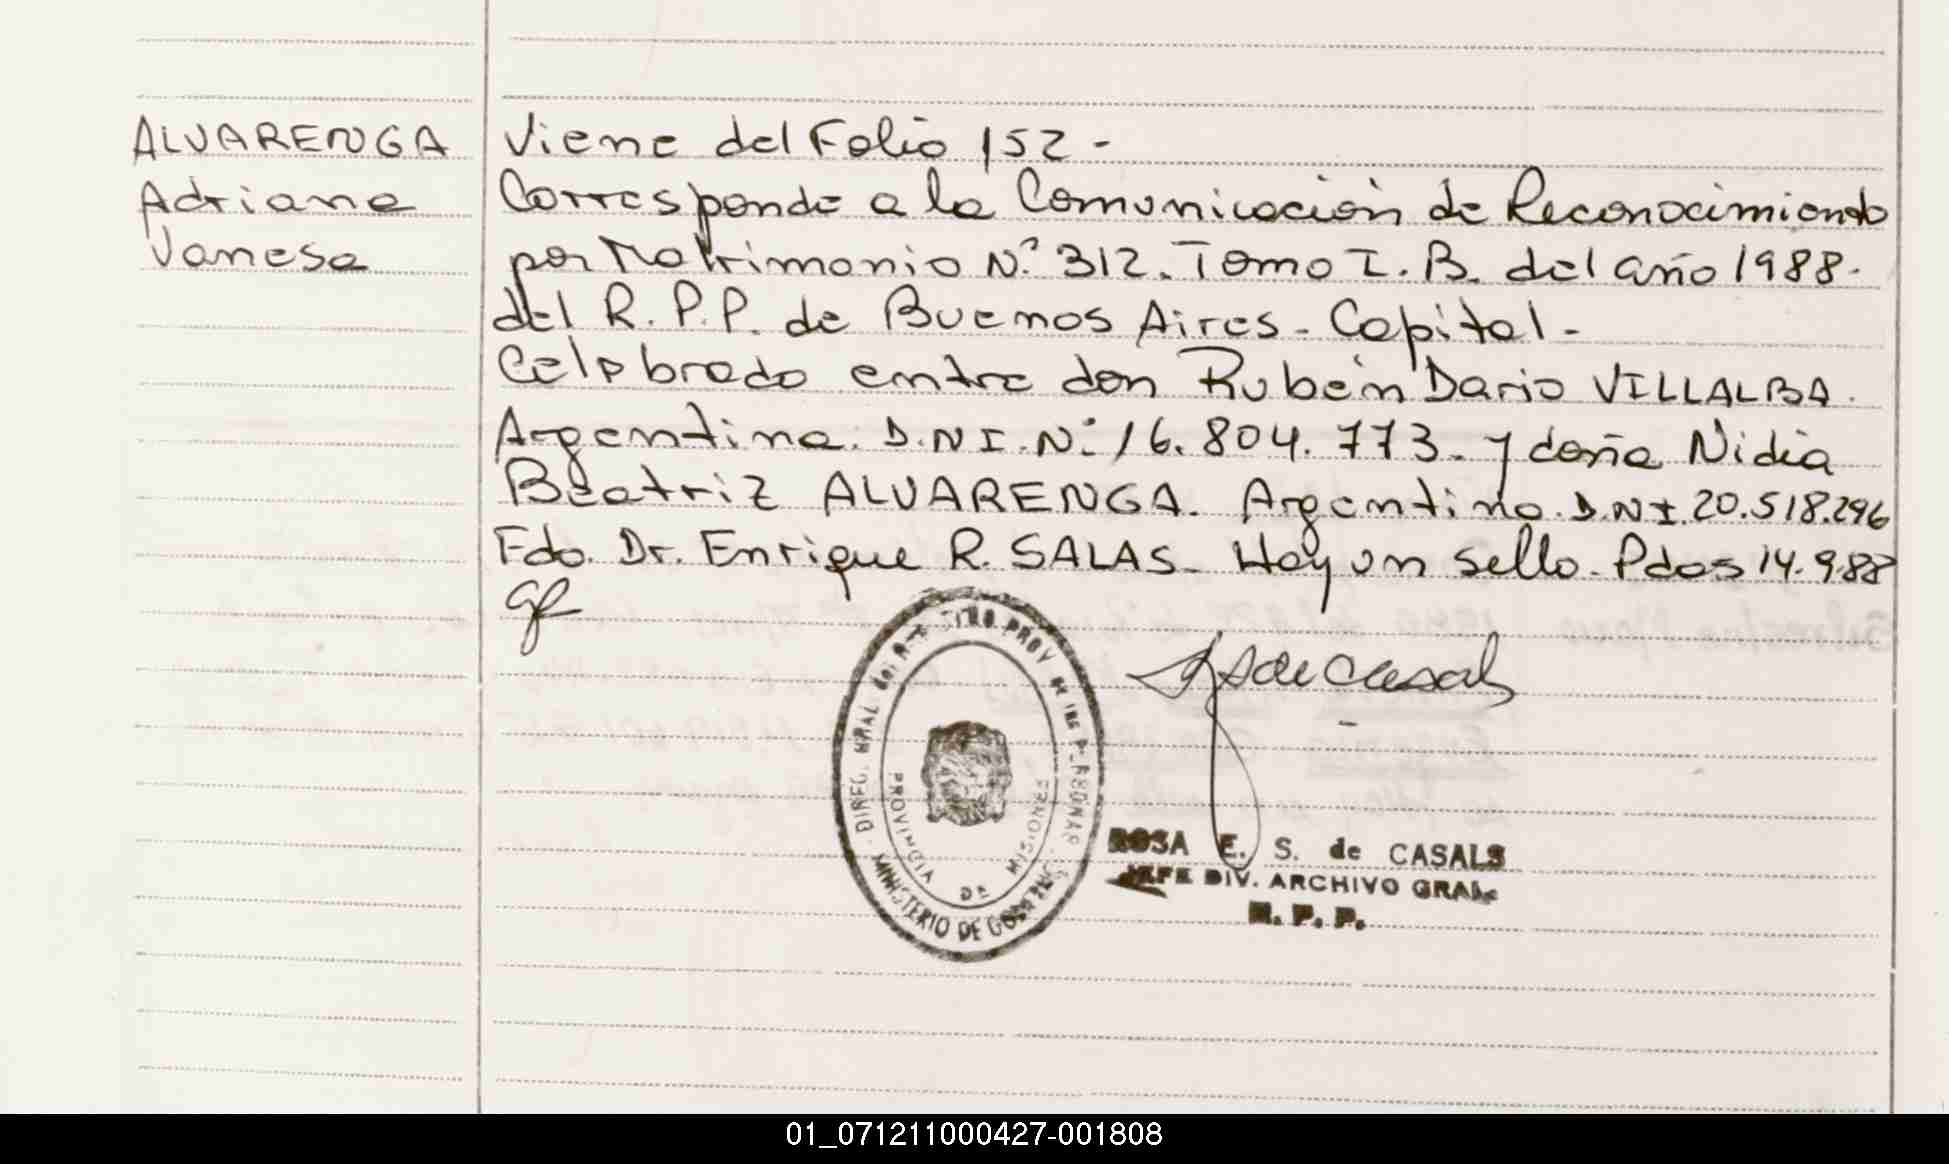 ALVARENGA
Adriana
Vanesa
Viene del Folio 152 -
Corresponde a la Comunicación de Reconocimiento
por Matrimonio N.º 312. Tomo I. B. del año 1988.
del R. P.P. de Buenos Aires - Capital -
Celebrado entre don Rubén Dario VILLALBA.
Argentino. D.N I. N.º 16.804.773. y doña Nidia
Beatriz ALVARENGA. Argentina. D.N I. 20.518.296
Fdo. Dr. Enrique R. SALAS - Hay un sello. Pdas 14.9.88
DIREC. GRAL del REGISTRO PROV de las PERSONAS
MINISTERIO DE GOBIERNO
PROVINCIA DE MISIONES
ROSA E. S. de CASALS
JEFE DIV. ARCHIVO GRAL
R. P. P.
01_071211000427-001808